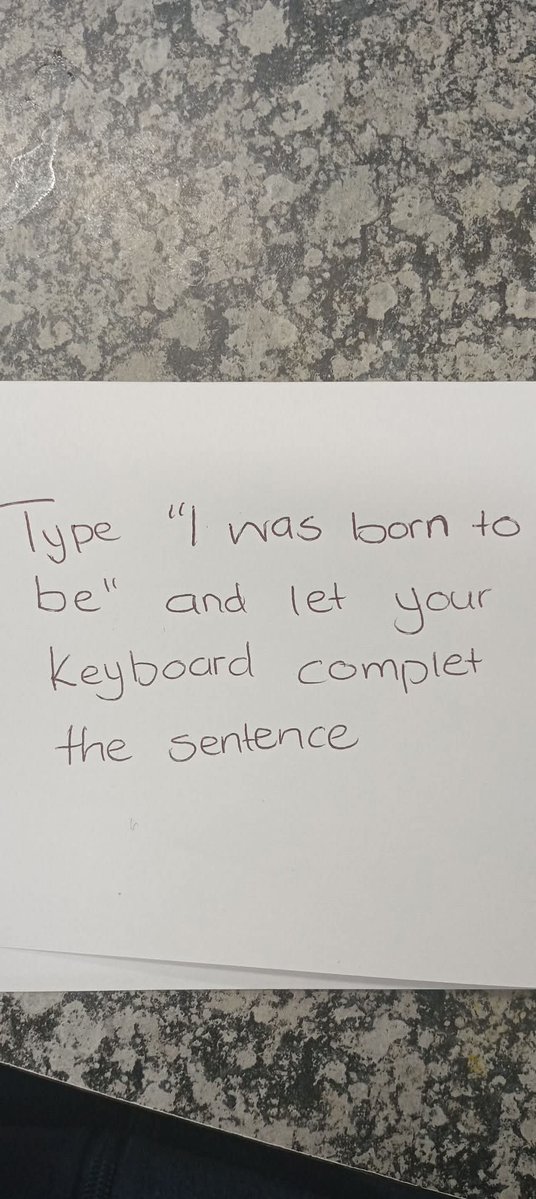 Type "I was born to
be" and let your
keyboard complet
the sentence